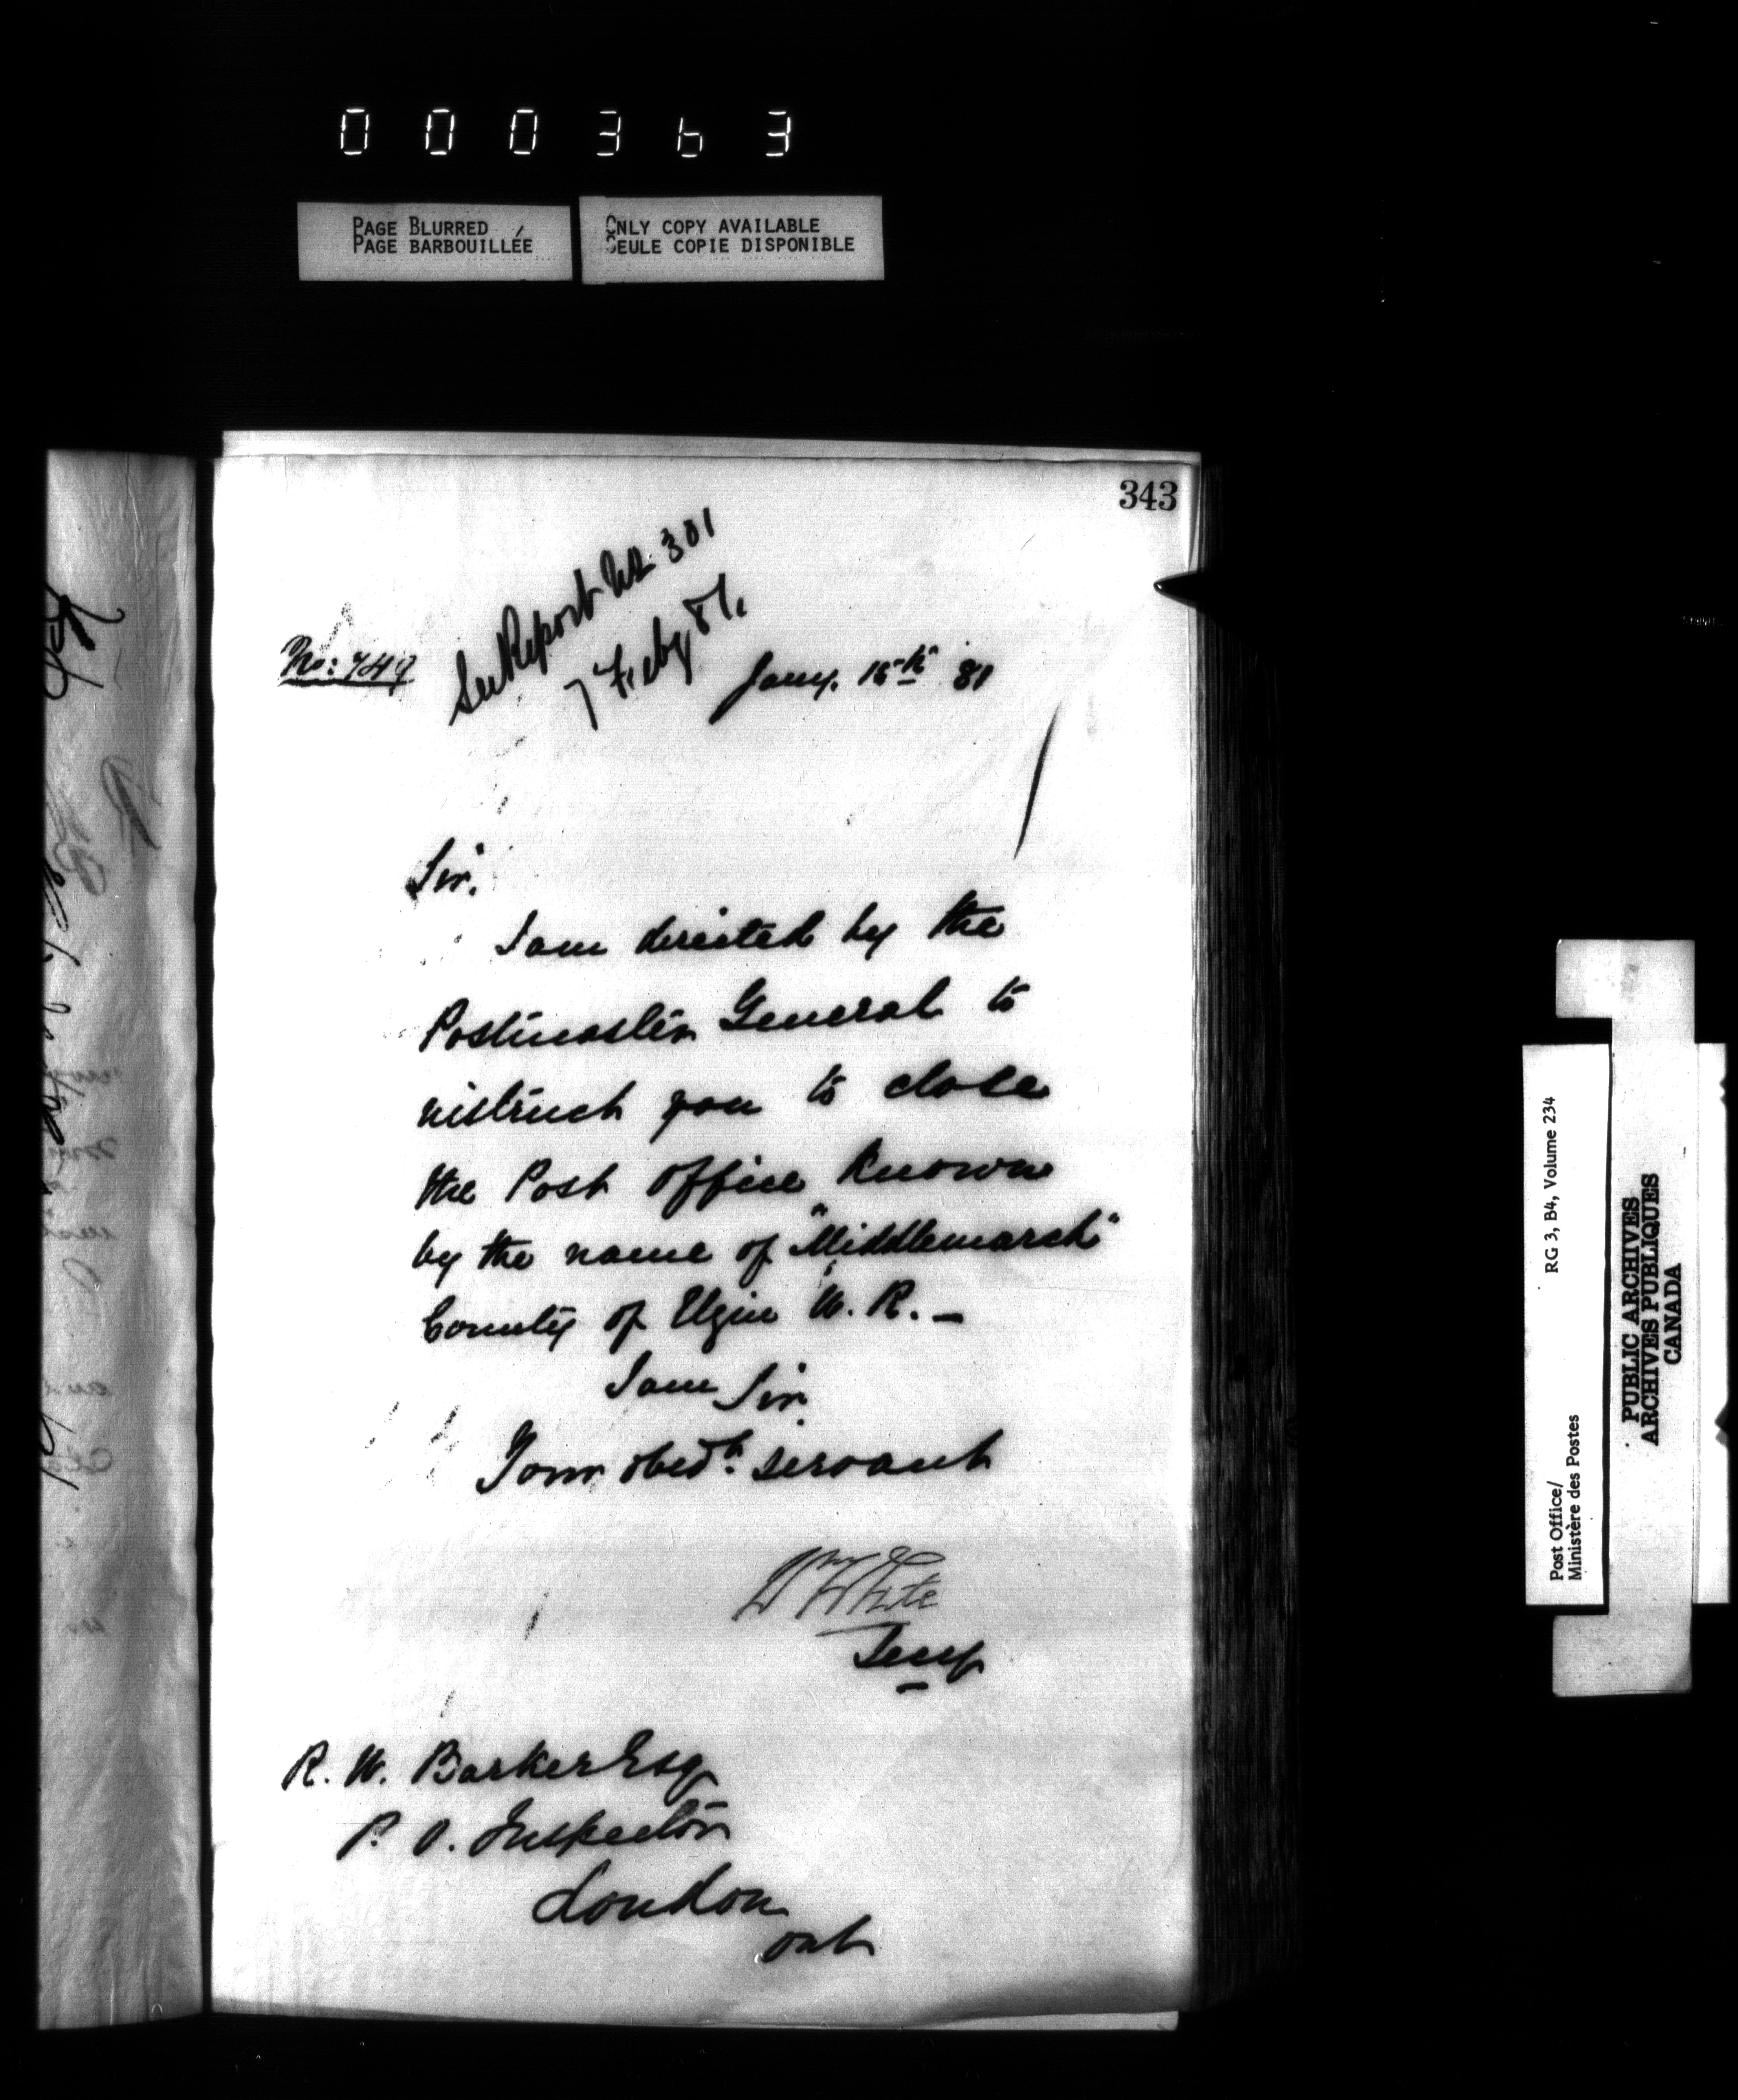 000363
PAGE BLURRED
PAGE BARBOUILLÉE
ONLY COPY AVAILABLE
SEULE COPIE DISPONIBLE
343
See Report No. 301
7 Feby 81.
No: 749
Jany. 15th 81
Sir.
I am directed by the
Postmaster General to
instruct you to close
the Post Office known
by the name of "Middlemarch"
County of Elgin W. R. —
I am Sir.
Your obedt. servant
Wm White
Secy
R. W. Barker Esq
P. O. Inspector
London
Ont
Post Office/
Ministère des Postes
RG 3, B4, Volume 234
PUBLIC ARCHIVES
ARCHIVES PUBLIQUES
CANADA